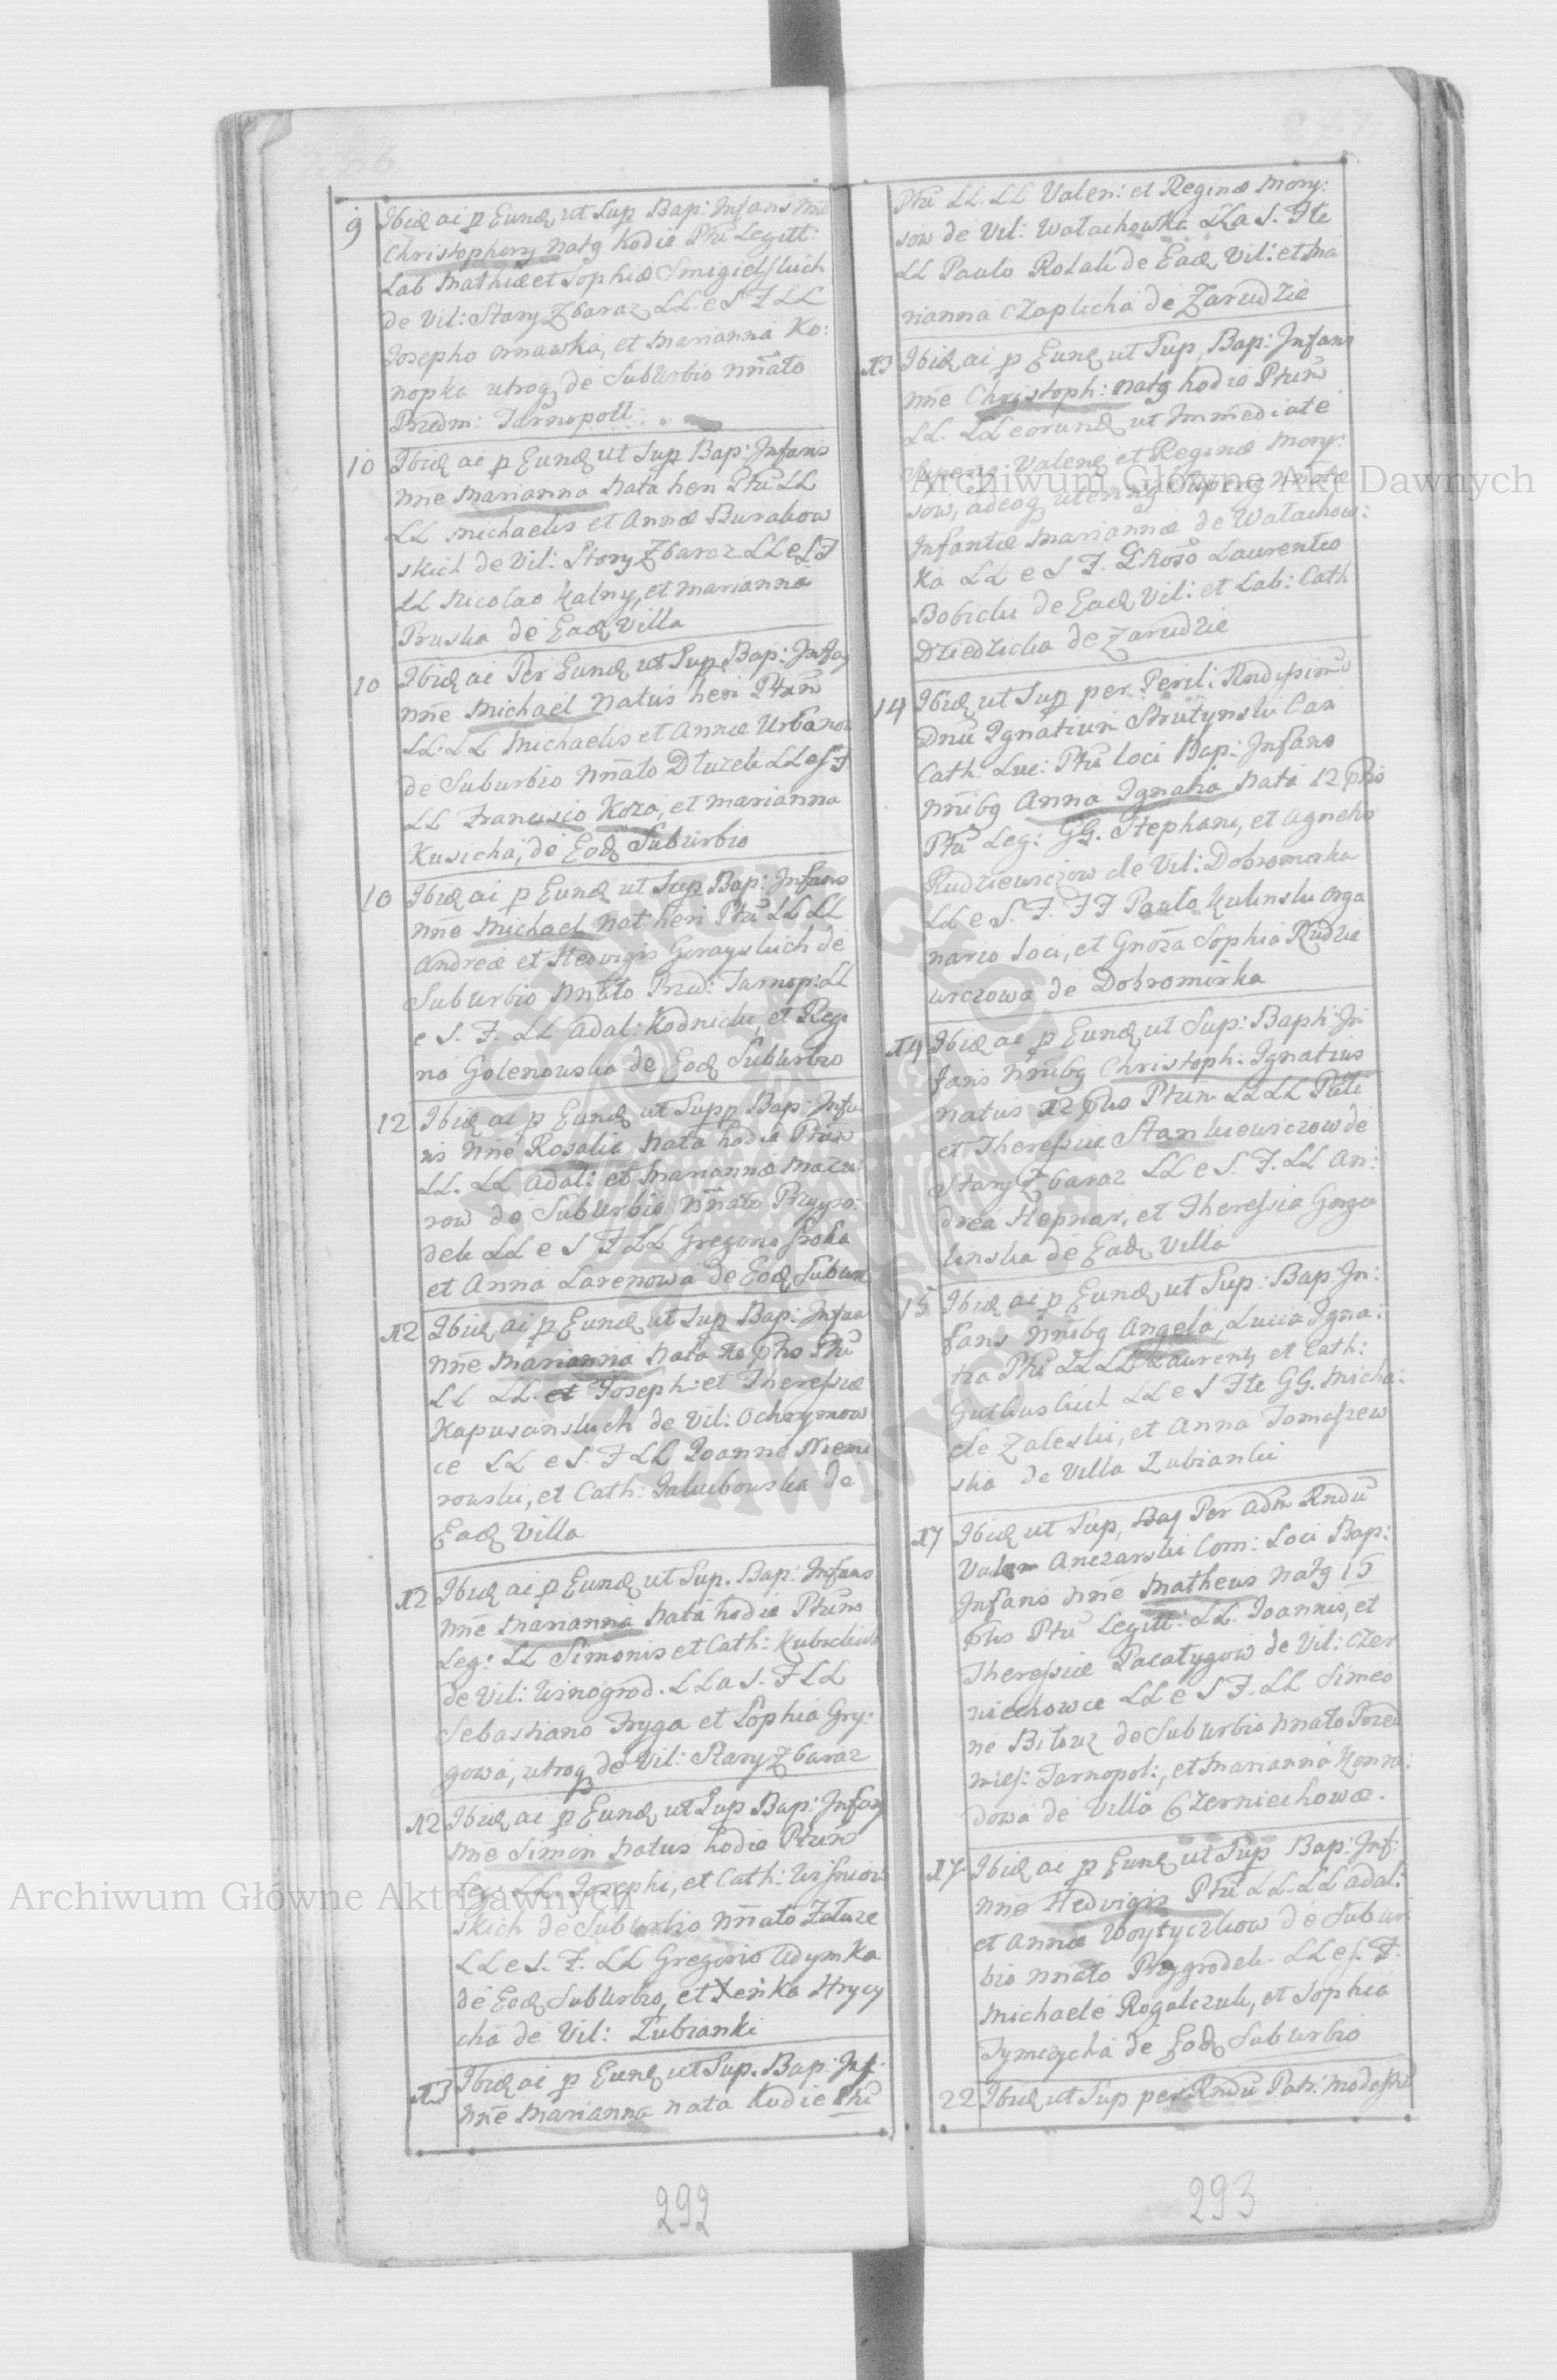 9 Ibid ai p Eund ut Sup Bap: Infans nne
Christophorg natg hodie Ptu Legitt:
Lab Mathiæ et Sophiæ Smigielskich
de Vil: Stary Zbaraz LL e S F LL
Josepho Ornawka, et Marianna Ko:
nopka utrog de Suburbio nnato
Przedm: Tarnopoll:
10 Ibid ai p Eund ut Sup Bap: Infans
nne Marianna Nata heri Ptu LL
LL Michaelis et Annæ Burakow
skich de Vil: Stary Zbaraz LL e S F
LL Nicolao Kalny, et Marianna
Pruska de Ead Villa
10 Ibid ai Per Eund ut Sup Bap: Infas
nne Michael Natus heri Ptum
LL. LL Michaelis et Annæ Urbanow
de Suburbio Nnato Dluzek LL e S F.
LL Francisco Koza, et Marianna
Kusicha, de Eod Suburbio
10 Ibid ai p Eund ut Sup Bap: Infans
nne Michael Nat: heri Ptu LL LL
Andreæ et Hedvigis Gerayskich de
Suburbio Nnato Przed: Tarnop: LL
e S. F. LL Adal: Kodnicki, et Regi
na Golenowska de Eod Suburbio
12 Ibid ai p Eund ut Supp Bap: Infa
ns nne Rosalia Nata hodie Ptum
LL. LL Adal: et Mariannæ Mazu
row de Suburbio Nnato Przygro:
dek LL e S F LL Gregorio Sroka
et Anna Larenowa de Eod Subur
12 Ibid ai p Eund ut Sup Bap: Infan
nne Marianna Nata 10 phs Ptu
LL LL. et Joseph: et Theresiæ
Kapuscinskich de Vil: Ochrymow
ce LL e S. F LL Joanne Niemi
rowski, et Cath: Jakubowska de
Ead Villa
12 Ibid ai p Eund ut Sup. Bap: Infans
nne Marianna Nata hodie Ptum
Leg: LL Simonis et Cath: Kubickich
de Vil: Winogrod. LL a S. F LL
Sebastiano Fryga et Sophia Gry:
gowa, utrog de Vil: Stary Zbaraz
12 Ibid ai p Eund ut Sup Bap: Infans
nne Simon Natus hodie Ptum
Leg: LL. Josephi, et Cath: Wisniow
skich de Suburbio Nnato Zaluze
LL e S. F. LL Gregorio Adymka
de Eod Suburbio, et Xenka Hrycy
cha de Vil: Lubianki
13 Ibid ai p Eund ut Sup. Bap: Inf:
nne Marianna nata hodie Ptu
292
Ptu LL. LL Valen: et Reginæ Mory:
sow de Vil: Walachowka LL a S. Fte
LL Paulo Rolak de Ead Vil: et Ma
rianna Czaplicha de Zarudzie
13 Ibid ai p Eund ut Sup, Bap: Infans
nne Christoph: natg hodie Ptum
LL. LL eorund ut Immediate
Superig: Valeng et Reginæ Mory:
sow, adeog utering Superig Nnatæ
Infantis Mariannæ de Walachow:
ka LL e S F. Laurentio
Bobiclu de Ead Vil: et Lab: Cath
Dziedzicka de Zarudzie
14 Ibid ut Sup per Peril: Rndissimu
Dnu Ignatium Strutynski Can
Cath: Luc: Ptu loci Bap: Infans
nnibg Anna Ignatia Nata 12 phs
Ptu Leg: GG. Stephani, et Agnetis
Rudziewiczow de Vil: Dobromirka
LL e S. F. FF Paulo Kulinski Orga
nario Loci, et Gnosa Sophia Rudzie
wiczowa de Dobromirka
14 Ibid ai p Eund ut Sup: Baph: In
fans nnibg Christoph: Ignatius
natus 12 phs Ptum LL LL Pauli
et Theresiæ Stankiewiczow de
Stary Zbaraz LL e S. F. LL An:
drea Hepnar, et Theresia Gorgo
linska de Ead Villa
15 Ibid ai p Eund ut Sup: Bap: In:
fans nnibg Angela, Lucia Igna:
tia Ptu LL LL Laurenty et Cath:
Gutkuskich LL e S Fte GG. Micha:
ele Zaleski, et Anna Tomaszew
ska de Villa Lubianki
17 Ibid ut Sup, Bap Per Adm Rndu
Valen Anczarski Com: Loci Bap:
Infans nne Matheus Natg 15
phs Ptu Legitt: LL. Joannis, et
Theresiæ Palatygow de Vil: Czer
niechowce LL e S F. LL Simeo
ne Bitouz de Suburbio Nnato Przed
mies: Tarnopol:, et Marianna Konra:
dowa de Villa Czerniechowce.
17 Ibid ai p Eund ut Sup Bap: Inf:
nne Hedvigis Ptu LL. LL Adal:
et Annæ Woytyczkow de Subur
bio nnato Przygrodek. LL e S. F.
Michaele Rogalczuk, et Sophia
Tymczycha de Eod Suburbio
22 Ibid ut Sup per Rndu Patr: Modestu
293
Archiwum Główne Akt Dawnych
Archiwum Główne Akt Dawnych